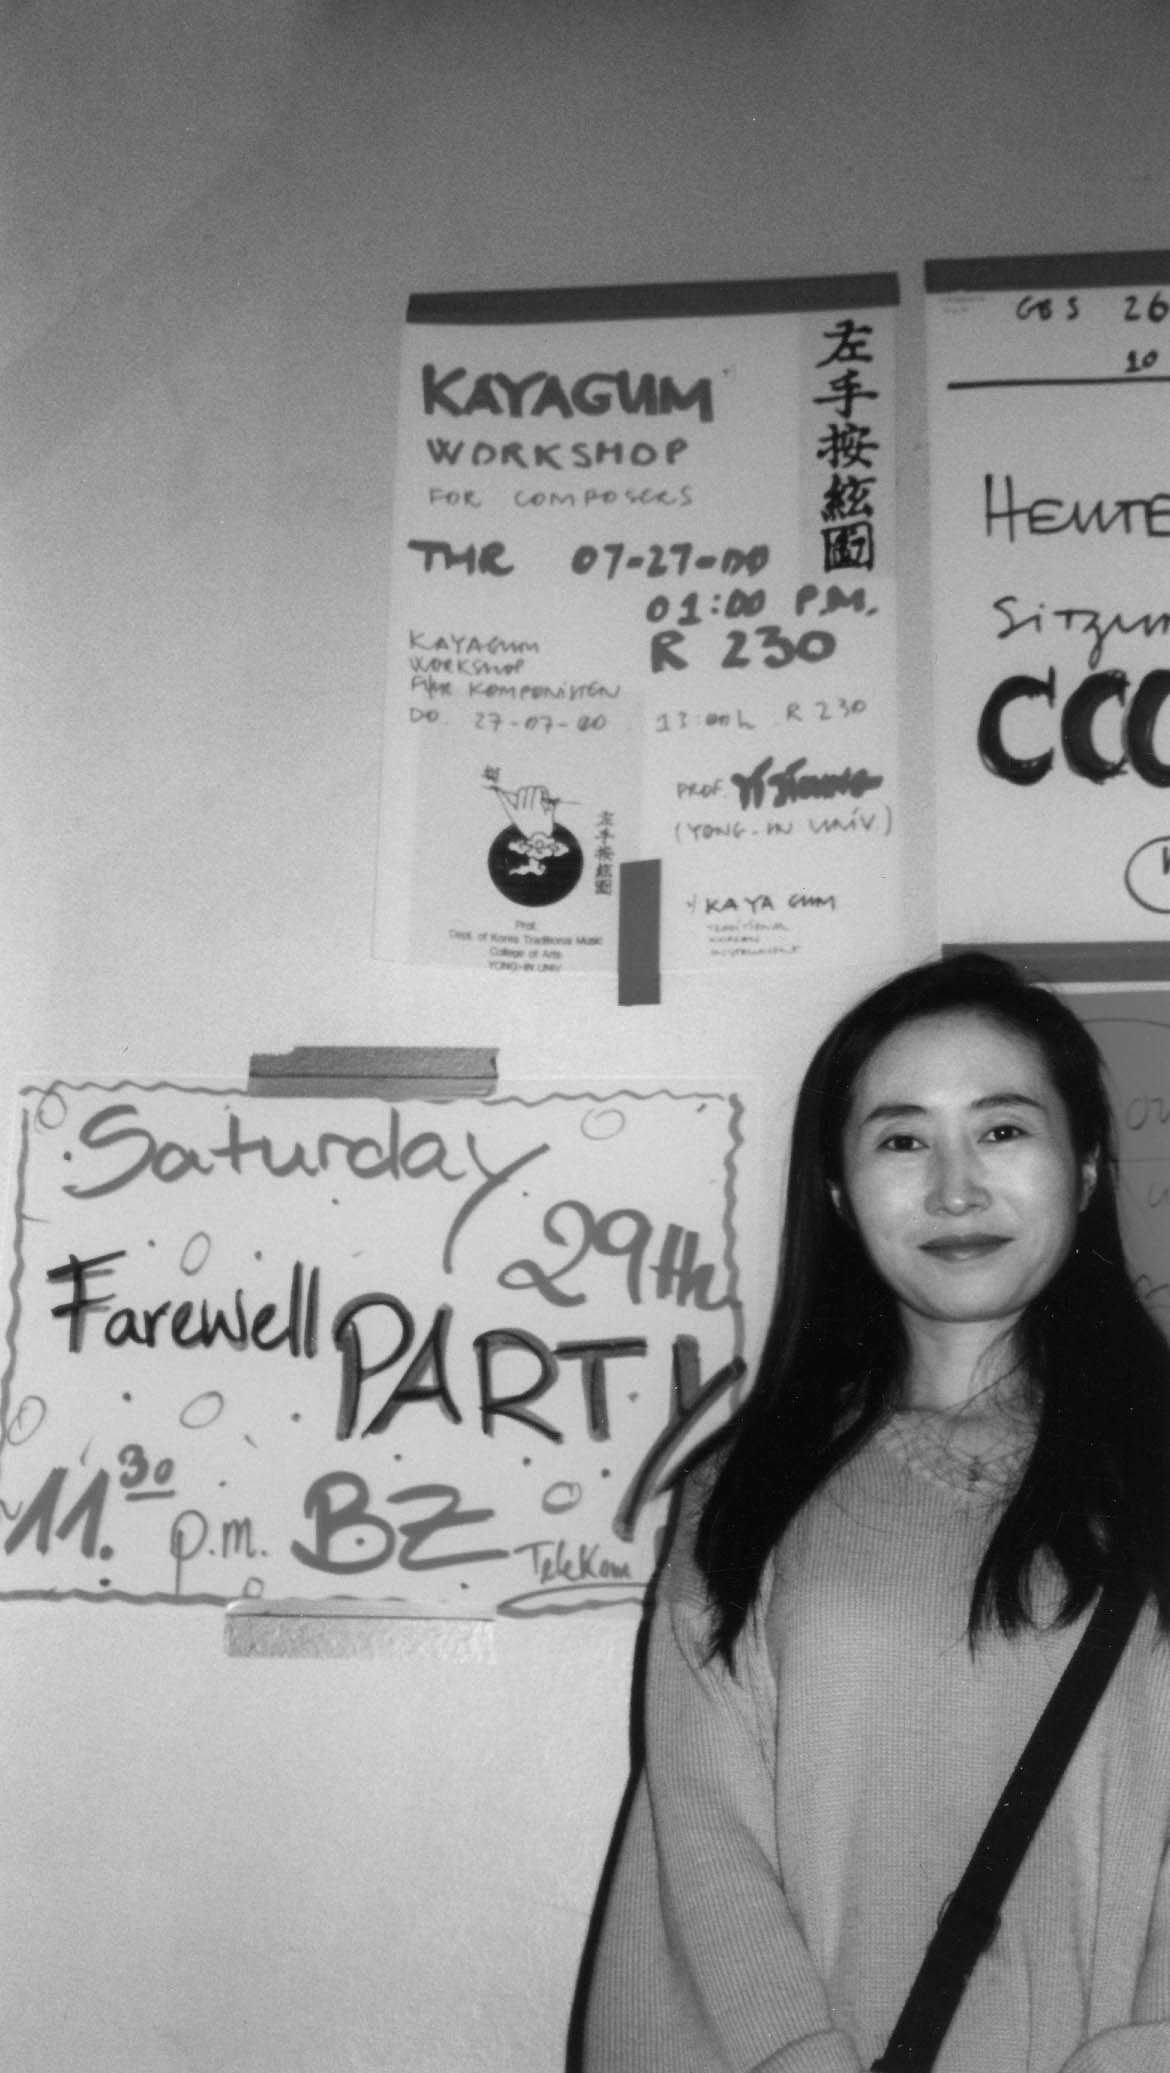 KAYAGUM
WORKSHOP
FOR COMPOSERS
THR 07-27-00
01:00 P.M.
R 230
左手按絃圖
KAYAGUM
WORKSHOP
FÜR KOMPONISTEN
DO. 27-07-00 13:00h R 230
PROF.
(YONG-IN UNIV.)
左手按絃圖
KAYAGUM
TRADITIONAL
KOREAN
INSTRUMENT
Prof.
Dept. of Korea Traditional Music
College of Arts
YONG-IN UNIV
GBS 26
10
HEUTE
Sitzun
CCC
Saturday
29th
Farewell PARTY
11.30 p.m. BZ
TeleKom